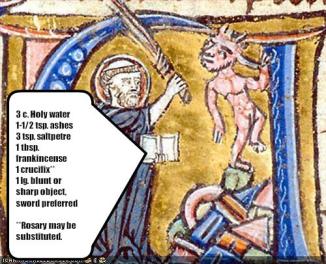 3 c. Holy water
1-1/2 tsp. ashes
3 tsp. saltpetre
1 tbsp.
frankincense
1 crucifix**
1 lg. blunt or
sharp object,
sword preferred
**Rosary may be
substituted.